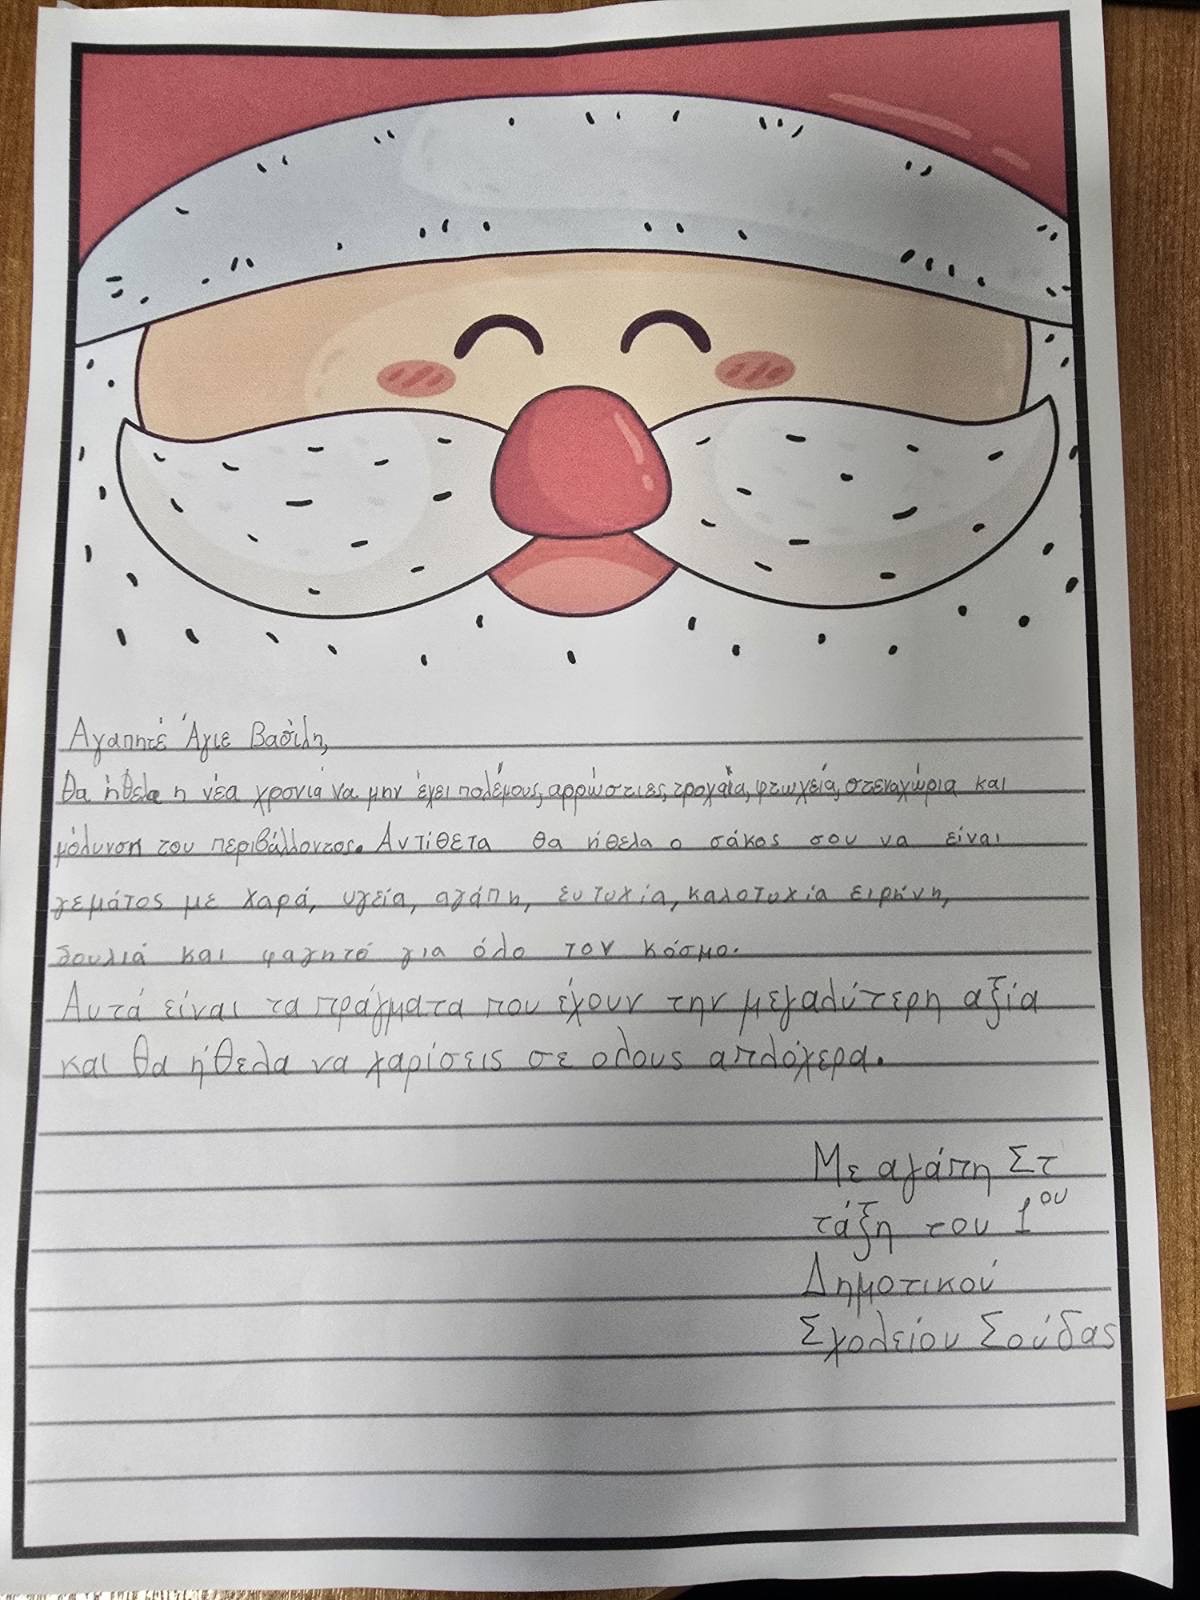 Αγαπητέ Άγιε Βασίλη,
Θα ήθελα η νέα χρονιά να μην έχει πολέμους, αρρώστιες, τροχαία, φτωχεία, στεναχώρια και
μόλυνση του περιβάλλοντος. Αντίθετα θα ήθελα ο σάκος σου να είναι
γεμάτος με χαρά, υγεία, αγάπη, ευτυχία, καλοτυχία ειρήνη,
δουλιά και φαγητό για όλο τον κόσμο.
Αυτά είναι τα πράγματα που έχουν την μεγαλύτερη αξία
και θα ήθελα να χαρίσεις σε ολους απλόχερα.
Με αγάπη Στ
τάξη του 1ου
Δημοτικού
Σχολείου Σούδας